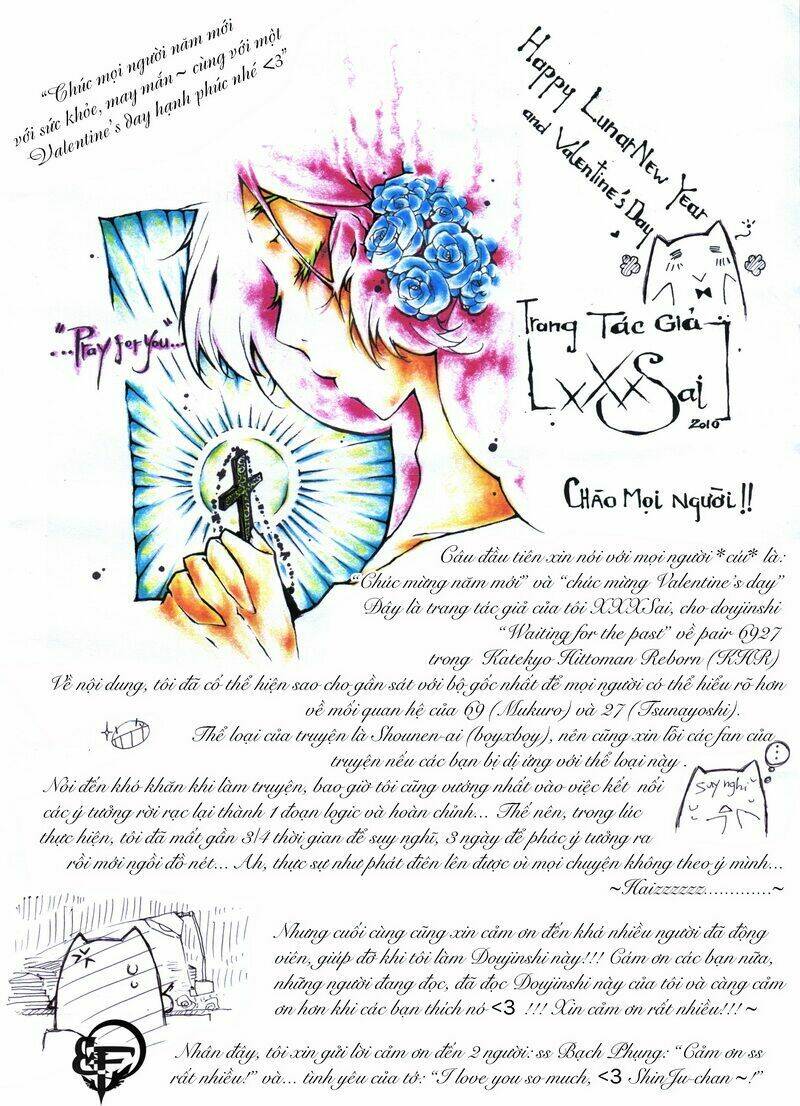 "Chúc mọi người năm mới
với sức khỏe, may mắn ~ cùng với một
Valentine's day hạnh phúc nhé <3"
Happy Lunar New Year
and Valentine's Day
"...Pray for you"...
Trang Tác Giả
xXxSai
2010
CHÀO MỌI NGƯỜI!!
Câu đầu tiên xin nói với mọi người *cúi* là:
"Chúc mừng năm mới" và "chúc mừng Valentine's day"
Đây là trang tác giả của tôi XXXSai, cho doujinshi
"Waiting for the past" về pair 6927
trong Katekyo Hittoman Reborn (KHR)
Về nội dung, tôi đã cố thể hiện sao cho gần sát với bộ gốc nhất để mọi người có thể hiểu rõ hơn
về mối quan hệ của 69 (Mukuro) và 27 (Tsunayoshi).
Thể loại của truyện là Shounen-ai (boyxboy), nên cũng xin lỗi các fan của
truyện nếu các bạn bị dị ứng với thể loại này .
suy nghĩ
Nói đến khó khăn khi làm truyện, bao giờ tôi cũng vướng nhất vào việc kết nối
các ý tưởng rời rạc lại thành 1 đoạn logic và hoàn chỉnh... Thế nên, trong lúc
thực hiện, tôi đã mất gần 3/4 thời gian để suy nghĩ, 3 ngày để phác ý tưởng ra
rồi mới ngồi đồ nét... Ah, thực sự như phát điên lên được vì mọi chuyện không theo ý mình...
~Haizzzzzz.............~
Nhưng cuối cùng cũng xin cảm ơn đến khá nhiều người đã động
viên, giúp đỡ khi tôi làm Doujinshi này!!! Cảm ơn các bạn nữa,
những người đang đọc, đã đọc Doujinshi này của tôi và càng cảm
ơn hơn khi các bạn thích nó <3 !!! Xin cảm ơn rất nhiều!!! ~
Nhân đây, tôi xin gửi lời cảm ơn đến 2 người: ss Bạch Phụng: "Cảm ơn ss
rất nhiều!" và... tình yêu của tớ: "I love you so much, <3 ShinJu-chan ~!"